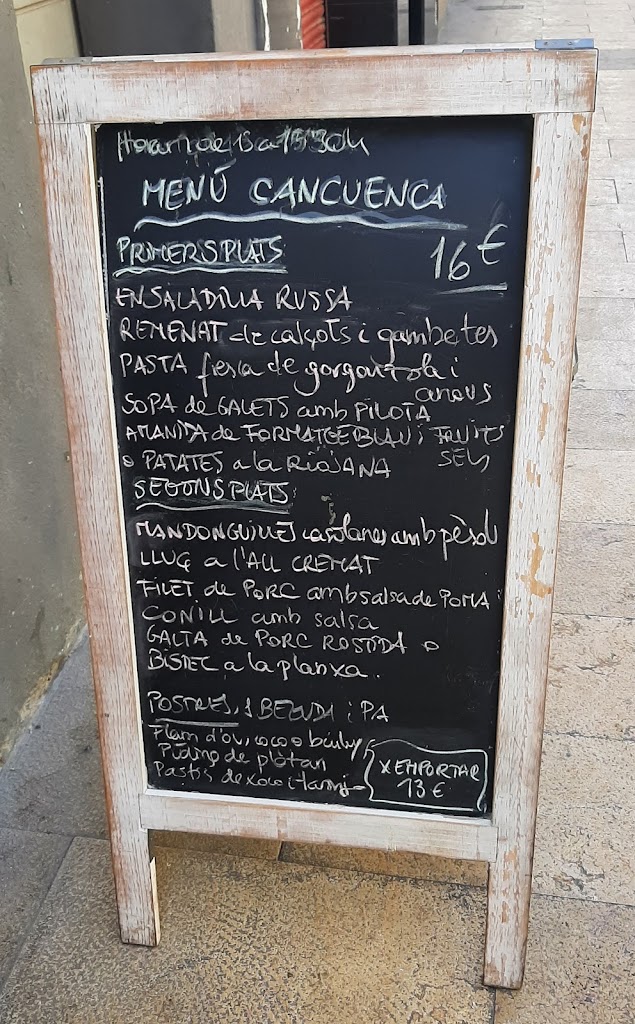 Horari de 13 a 15'30h
MENÚ CANCUENCA
PRIMERS PLATS
16€
ENSALADILLA RUSSA
REMENAT de calçots i gambetes
PASTA fresca de gorgonzola i
anous
SOPA de GALETS amb PILOTA
AMANIDA de FORMATGE BLAU i FRUITS
SECS
o PATATES a la RIOJANA
SEGONS PLATS
MANDONGUILLES casolanes amb pèsol
LLUÇ a l'ALL CREMAT
FILET de PORC amb salsa de POMA
CONILL amb salsa
GALTA de PORC ROSTIDA o
BISTEC a la planxa.
POSTRES, 1 BEGUDA i PA
Flam d'ou, coco o
Púding de plàtan
Pastís de xoco i
X EMPORTAR
13€